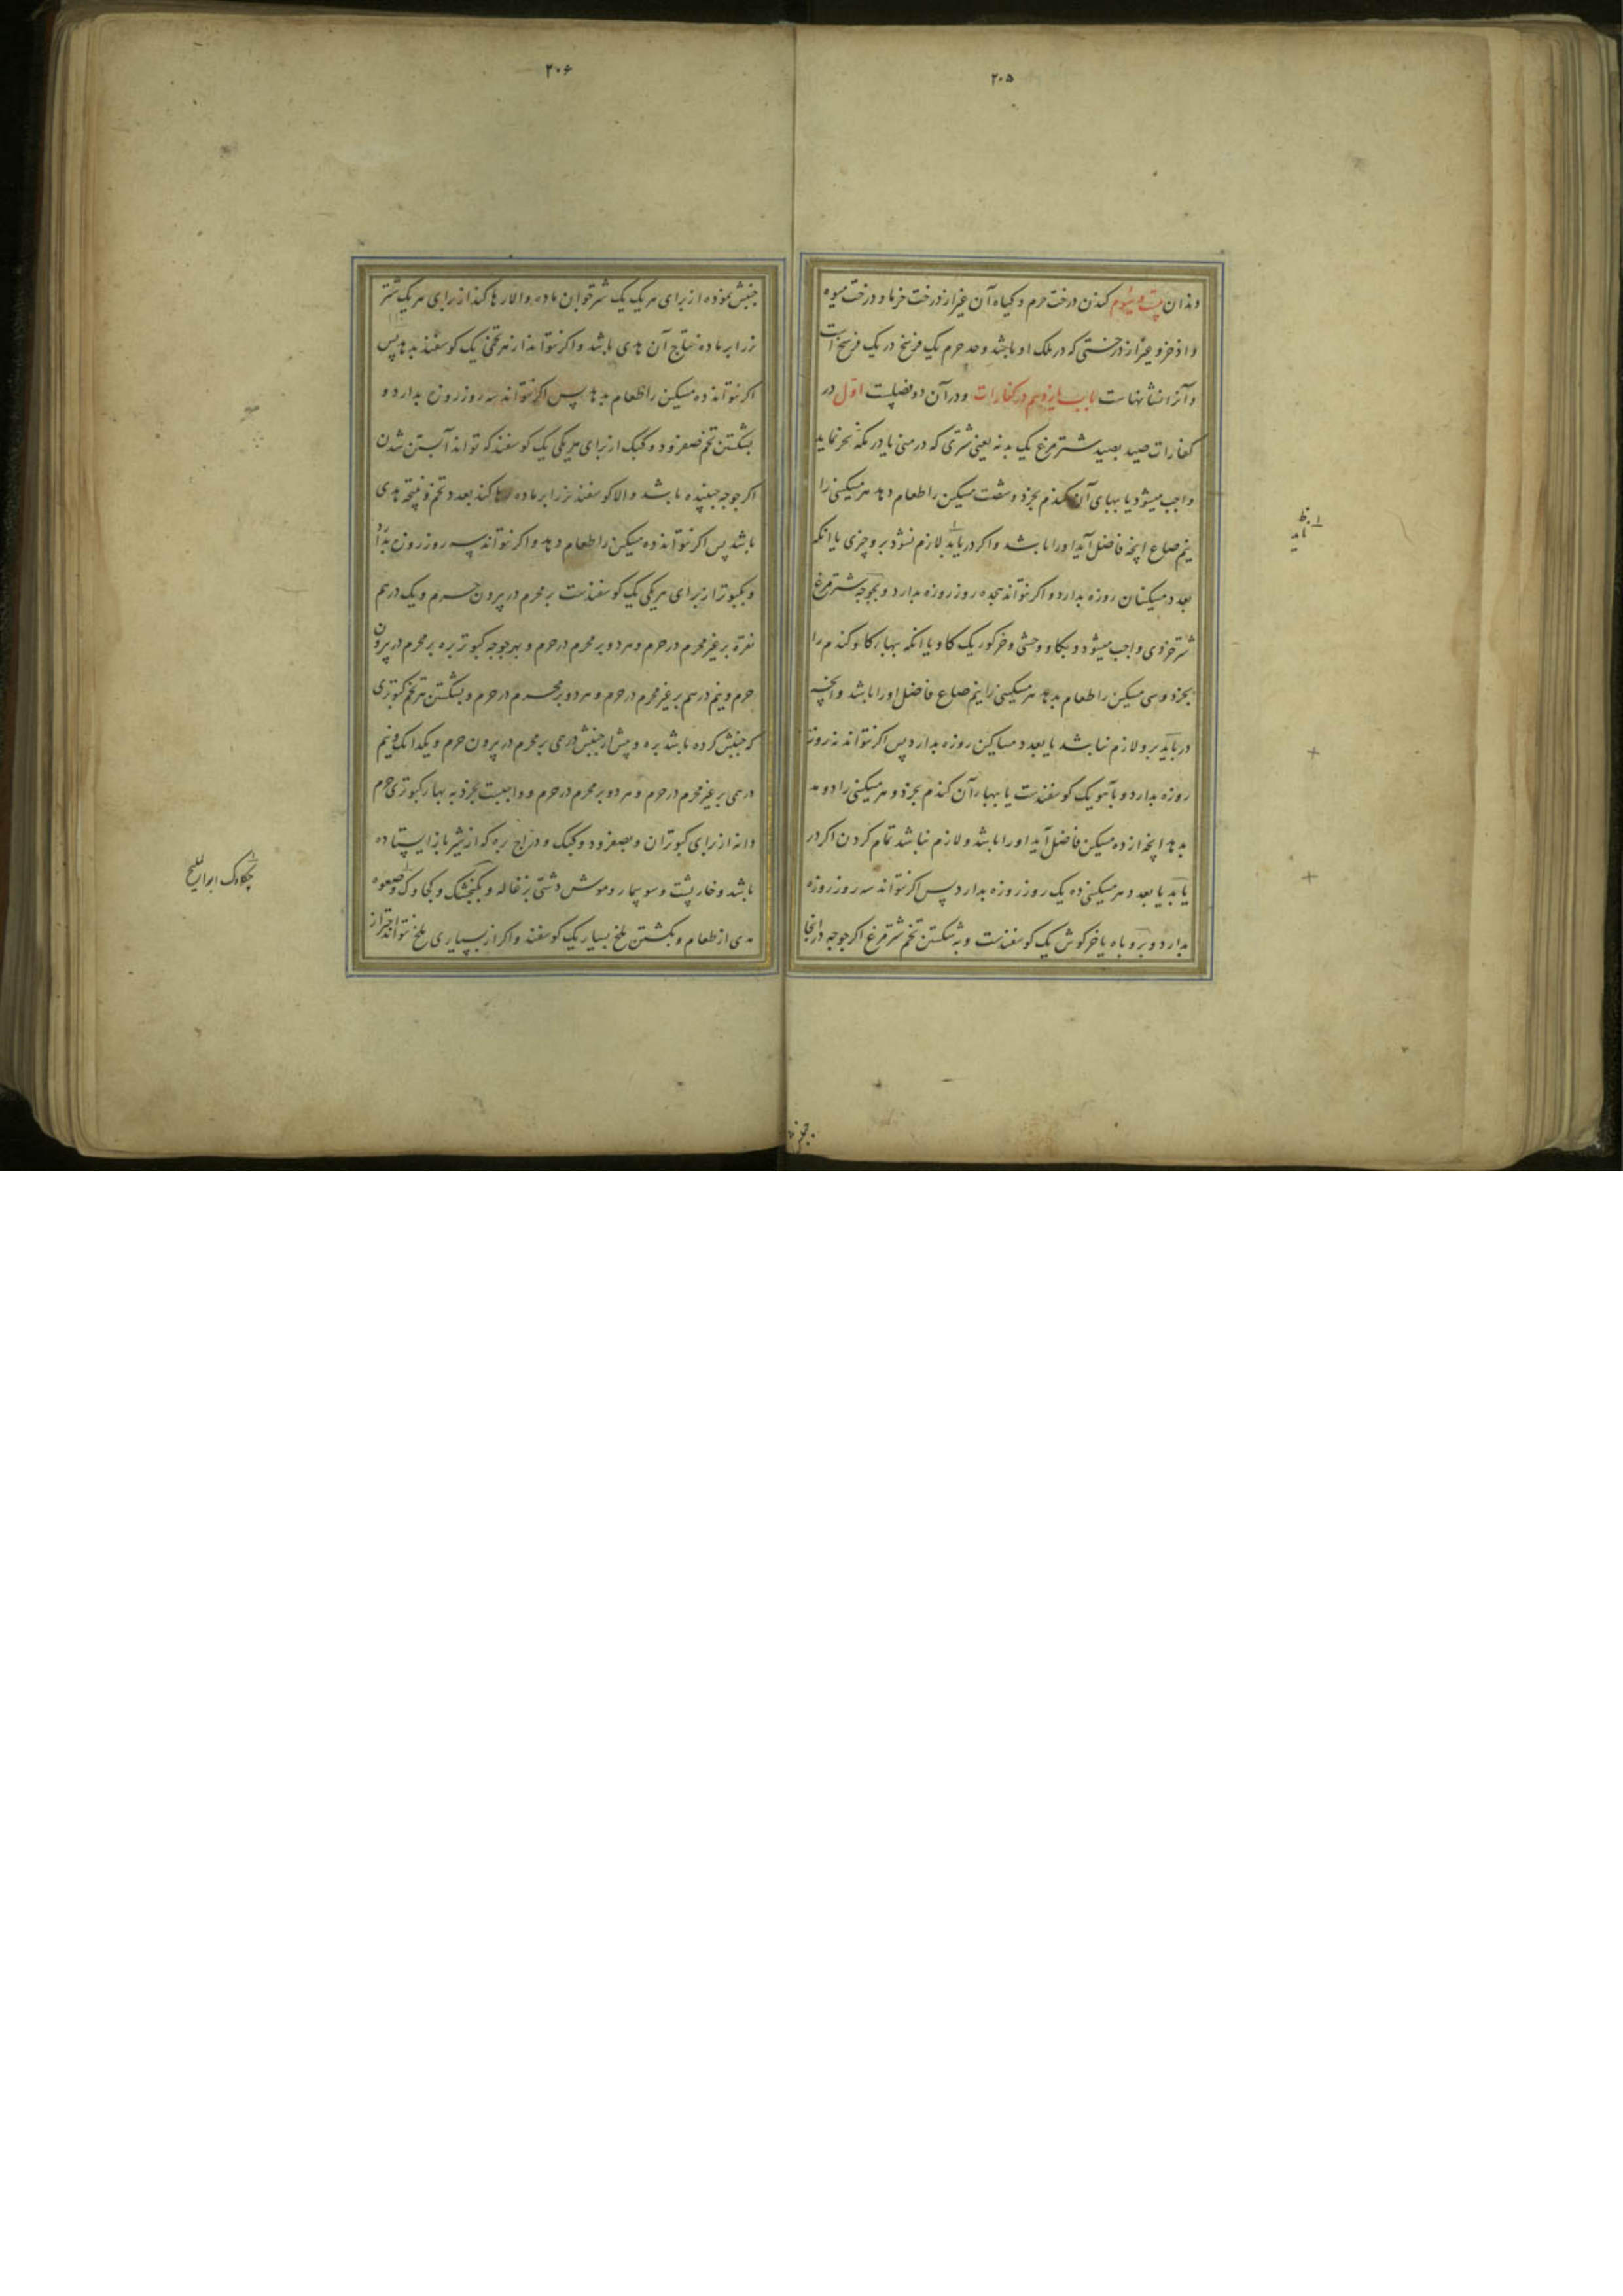 ۲۰۵
دندان بیست و سیوم کندن درخت حرم و گیاه آن غیر از درخت خرما و درخت میوه
و اذخر و غیر از درختی که در ملک او باشد و حد حرم یک فرسخ در یک فرسخ است
و آنرا نشانهاست باب یازدهم در کفارات و در آن دو فصلست اول در
کفارات صید بصید شترمرغ یک بدنه یعنی شتری که در منی یا در مکه نحر نماید
واجب میشود یا ببهای آن گندم بخرد و شصت مسکین را طعام دهد هر مسکینی را
نیم صاع آنچه فاضل آید او را باشد و اگر در باید لازم نشود برو چیزی یا آنکه
بعدد مسکینان روزه بدارد و اگر نتواند هیجده روز روزه بدارد و بجوجه شترمرغ
شتر خردی واجب میشود و بگاو وحشی و خر گور یک گاو یا آنکه ببهای گاو گندم را
بخرد و سی مسکین را طعام بدهد هر مسکینی را نیم صاع فاضل او را باشد و آنچه
در باید برو لازم نباشد یا بعدد مساکین روزه بدارد پس اگر نتواند نه روز
روزه بدارد و بآهو یک گوسفندست یا ببهاء آن گندم بخرد و هر مسکینی را دو مد
بدهد آنچه از ده مسکین فاضل آید او را باشد و لازم نباشد تمام کردن اگر در
یابد یا بعدد هر مسکینی ده یک روز روزه بدارد پس اگر نتواند سه روز روزه
بدارد و بروباه یا خرگوش یک گوسفندست و بشکستن تخم شترمرغ اگر جوجه در آنجا
۲۰۶
جنبش نموده از برای هر یک یک شتر جوان ماده و الا رها کند از برای هر یک شتر
نر را بر ماده نتاج آن هدی باشد و اگر نتواند از هر تخمی یک گوسفند بدهد پس
اگر نتواند ده مسکین را طعام بدهد پس اگر نتواند سه روز روزه بدارد و
بشکستن تخم صعفرود و کبک از برای هر یکی یک گوسفند که تواند آبستن شدن
اگر جوجه جنبنده باشد و الا گوسفند نر را بر ماده رها کند بعدد تخم و نتیجه هدی
باشد پس اگر نتواند ده مسکین را طعام دهد و اگر نتواند سه روز روزه بدارد
و بکبوتر از برای هر یکی یک گوسفندست بر محرم در بیرون حرم و یک درهم
نقره بر غیر محرم در حرم و هر دو بر محرم در حرم و بهر جوجه کبوتر بره بر محرم در بیرون
حرم و نیم درهم بر غیر محرم در حرم و هر دو بر محرم در حرم و بشکستن هر تخم کبوتری
که جنبش کرده باشد بره و پیش از جنبش درهمی بر محرم در بیرون حرم و یکدانک و نیم
درهمی بر غیر محرم در حرم و هر دو بر محرم در حرم و واجبست بخرد به بهاء کبوتری حرم
دانه از برای کبوتران و بصعفرود و کبک و دراج بره که از شیر باز ایستاده
باشد و خارپشت و سوسمار و موش دشتی بزغاله و بگنجشک و بکجاوک و صعوه
مدی از طعام و بکشتن ملخ بسیار یک گوسفند و اگر از بسیاری ملخ نتواند احتراز
چکاوک ابو الملیح